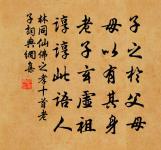 子之於父
母以有其身
老子玄虛祖
諄諄此語人
林同仙佛之孝十首老
子詞典網集